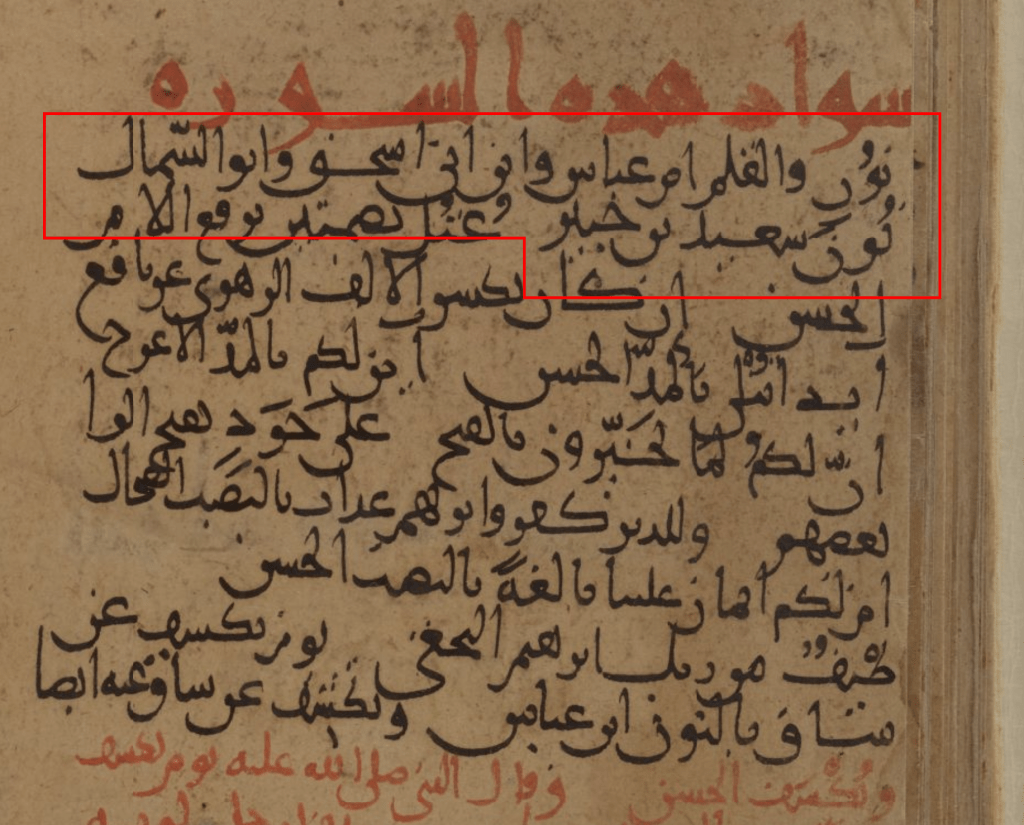 سواد هده السوره
نونِ والقلم ابن عباس وابن ابى اسحق وابوا السّمال
نونَ سعيد بن جبير عُتُلٌ بضمتين برفع اللام
الحسن ان كان بكسر الالف الزهرى عن نافع
اىد بالمدّ الحسن اين لكم بالمدّ الاعرج
انّ لكم لما تخيّرون بالفتح على حَرَد بفتح الرا
بعضهم وللدين كفروا بربهم عداب بالنصب الضحاك
ام لكم ايمان علينا بالغةً بالنصب الحسن
طيف من ربك ابرهيم النخعى يوم نكشف عن
ساق بالنون ابن عباس وتكشف عن ساق عنه ايضا
وتُكشف الحسن وقال النبى صلى الله عليه يوم نكشف